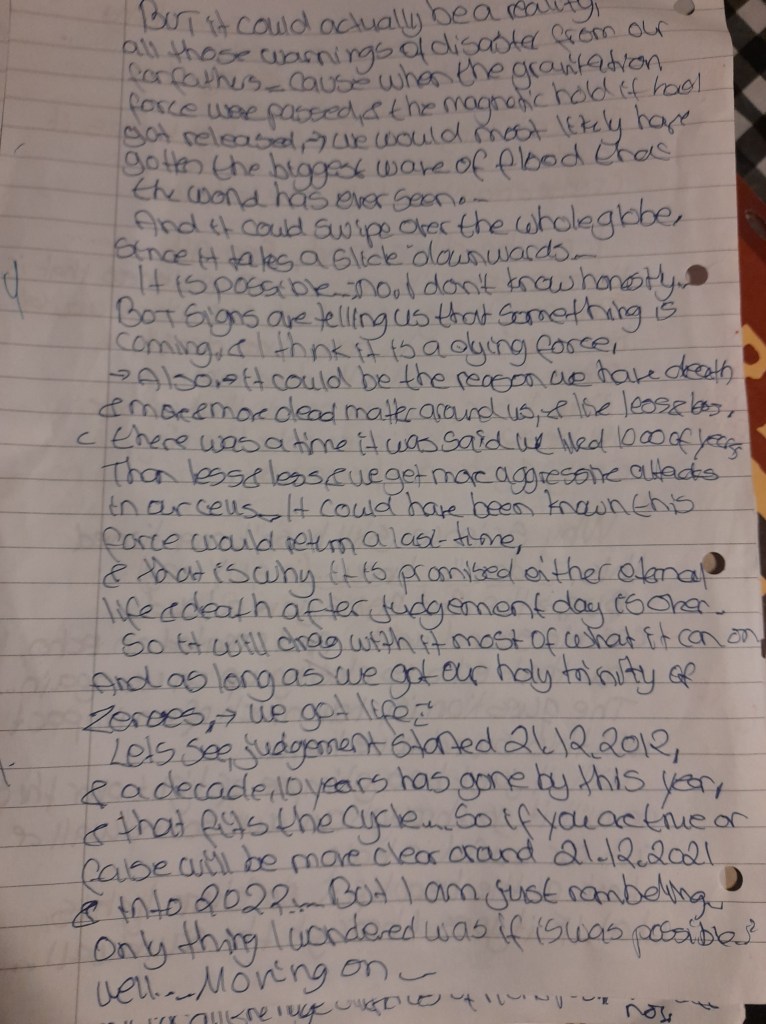 BUT it could actually be a reality,
all those warnings of disaster from our
forfathers_ cause when the gravitation
force were passed, & the magnetic hold it had
got released,→ we would most likely have
gotten the biggest wave of flood that
the world has ever seen._
And it could swipe over the whole globe,
since it takes a slide downwards_
It is possible_no, I don't know honestly.
BOT signs are telling us that something is
coming, & I think it is a dying force,
→ Also,→ it could be the reason we have death
& more & more dead matter around us, & live less & less,
there was a time it was said we lived 1000 of years
Than less & less & we get more aggressive attacks
in our cells_ It could have been known this
force would return a last-time,
& that is why it is promised either eternal
life & death after judgement day is over_
So it will drag with it most of what it can on
And as long as we got our holy trinity of
Zeroes,→ we got life
Lets see, judgement started 21.12.2012,
& a decade, 10 years has gone by this year,
& that fits the cycle... So if you are true or
false will be more clear around 21.12.2021
& into 2022_ But I am just rambeling_
Only thing I wondered was if is was possible?
well... Moving on_